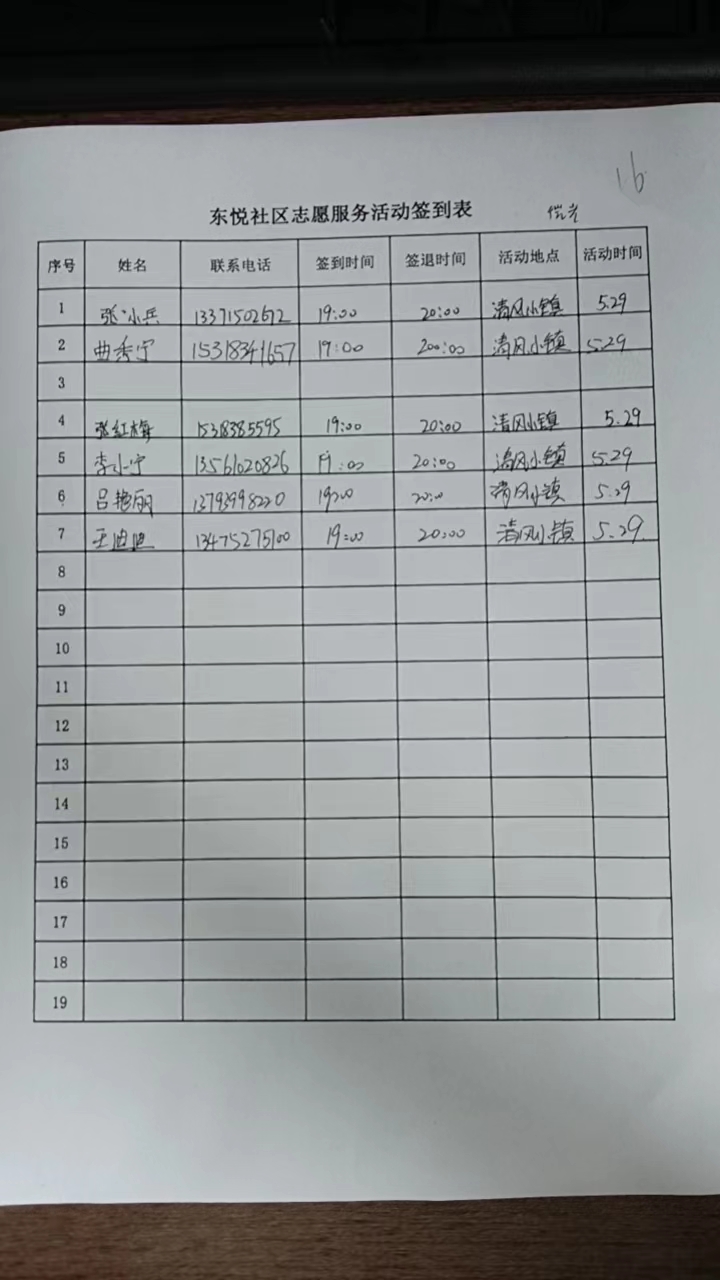 16
东悦社区志愿服务活动签到表
序号 姓名 联系电话 签到时间 签退时间 活动地点 活动时间
1 张小兵 13371502672 19:00 20:00 清风小镇 5.29
2 曲秀宁 15318341657 19:00 200:00 清风小镇 5.29
3
4 张红梅 15318385595 19:00 20:00 清风小镇 5.29
5 李小宁 13561020826 19:00 20:00 清风小镇 5.29
6 吕艳丽 13793998220 19:00 20:00 清风小镇 5.29
7 王迪迪 13475275100 19:00 20:00 清风小镇 5.29
8
9
10
11
12
13
14
15
16
17
18
19